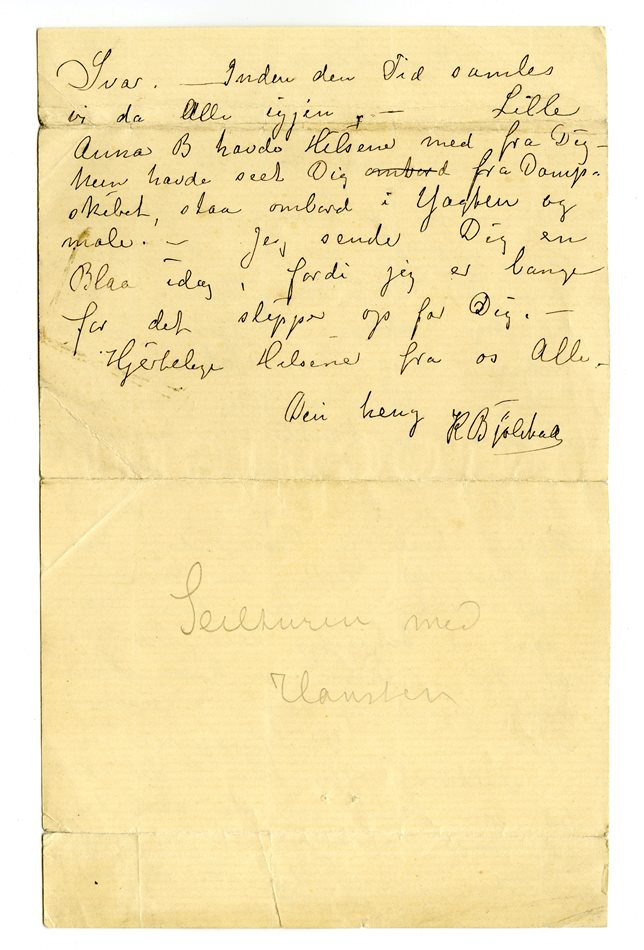 Svar. — Inden den Tid samles
vi da Alle igjen. — Lille
Anna B havde Hilsene med fra Dig —
hun havde seet Dig ombord fra Damp-
skibet, staa ombord i Yagten og
male. — Jeg sende Dig en
Blaa idag, fordi jeg er bange
for det slipper op for Dig. —
Hjertelige Hilsener fra os Alle. —
Din heng
K Bjölstad
Seilturen med
Hansteen